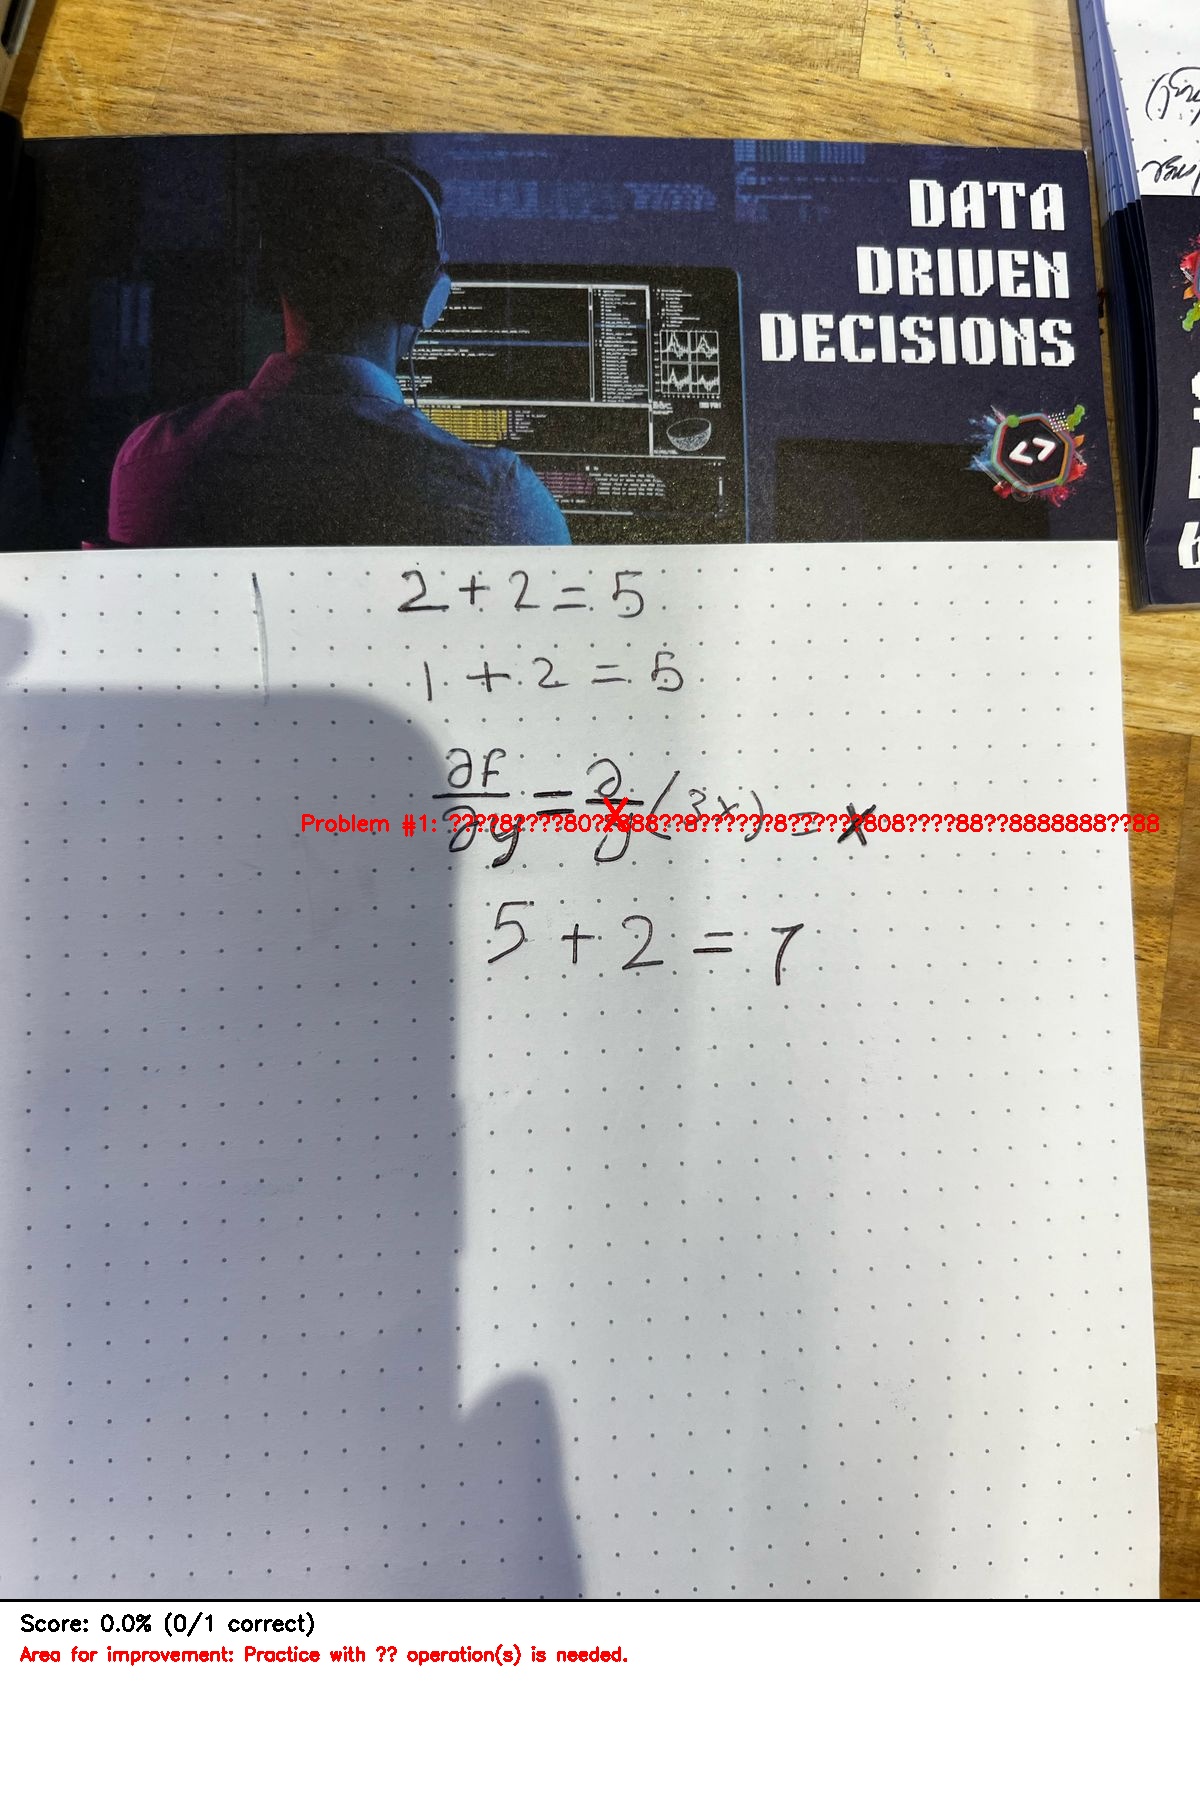 DATA
DRIVEN
DECISIONS
2 + 2 = 5
1 + 2 = 5
∂f/∂y = ∂/y (3x) = x
Problem #1: ????8????80??888??8??????8??????808????88??8888888??88
5 + 2 = 7
Score: 0.0% (0/1 correct)
Area for improvement: Practice with ?? operation(s) is needed.